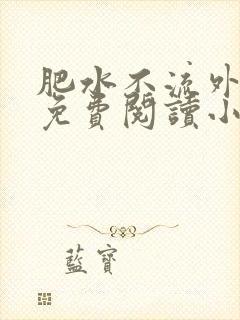 肥水不流外
免費閱讀小
藍寶